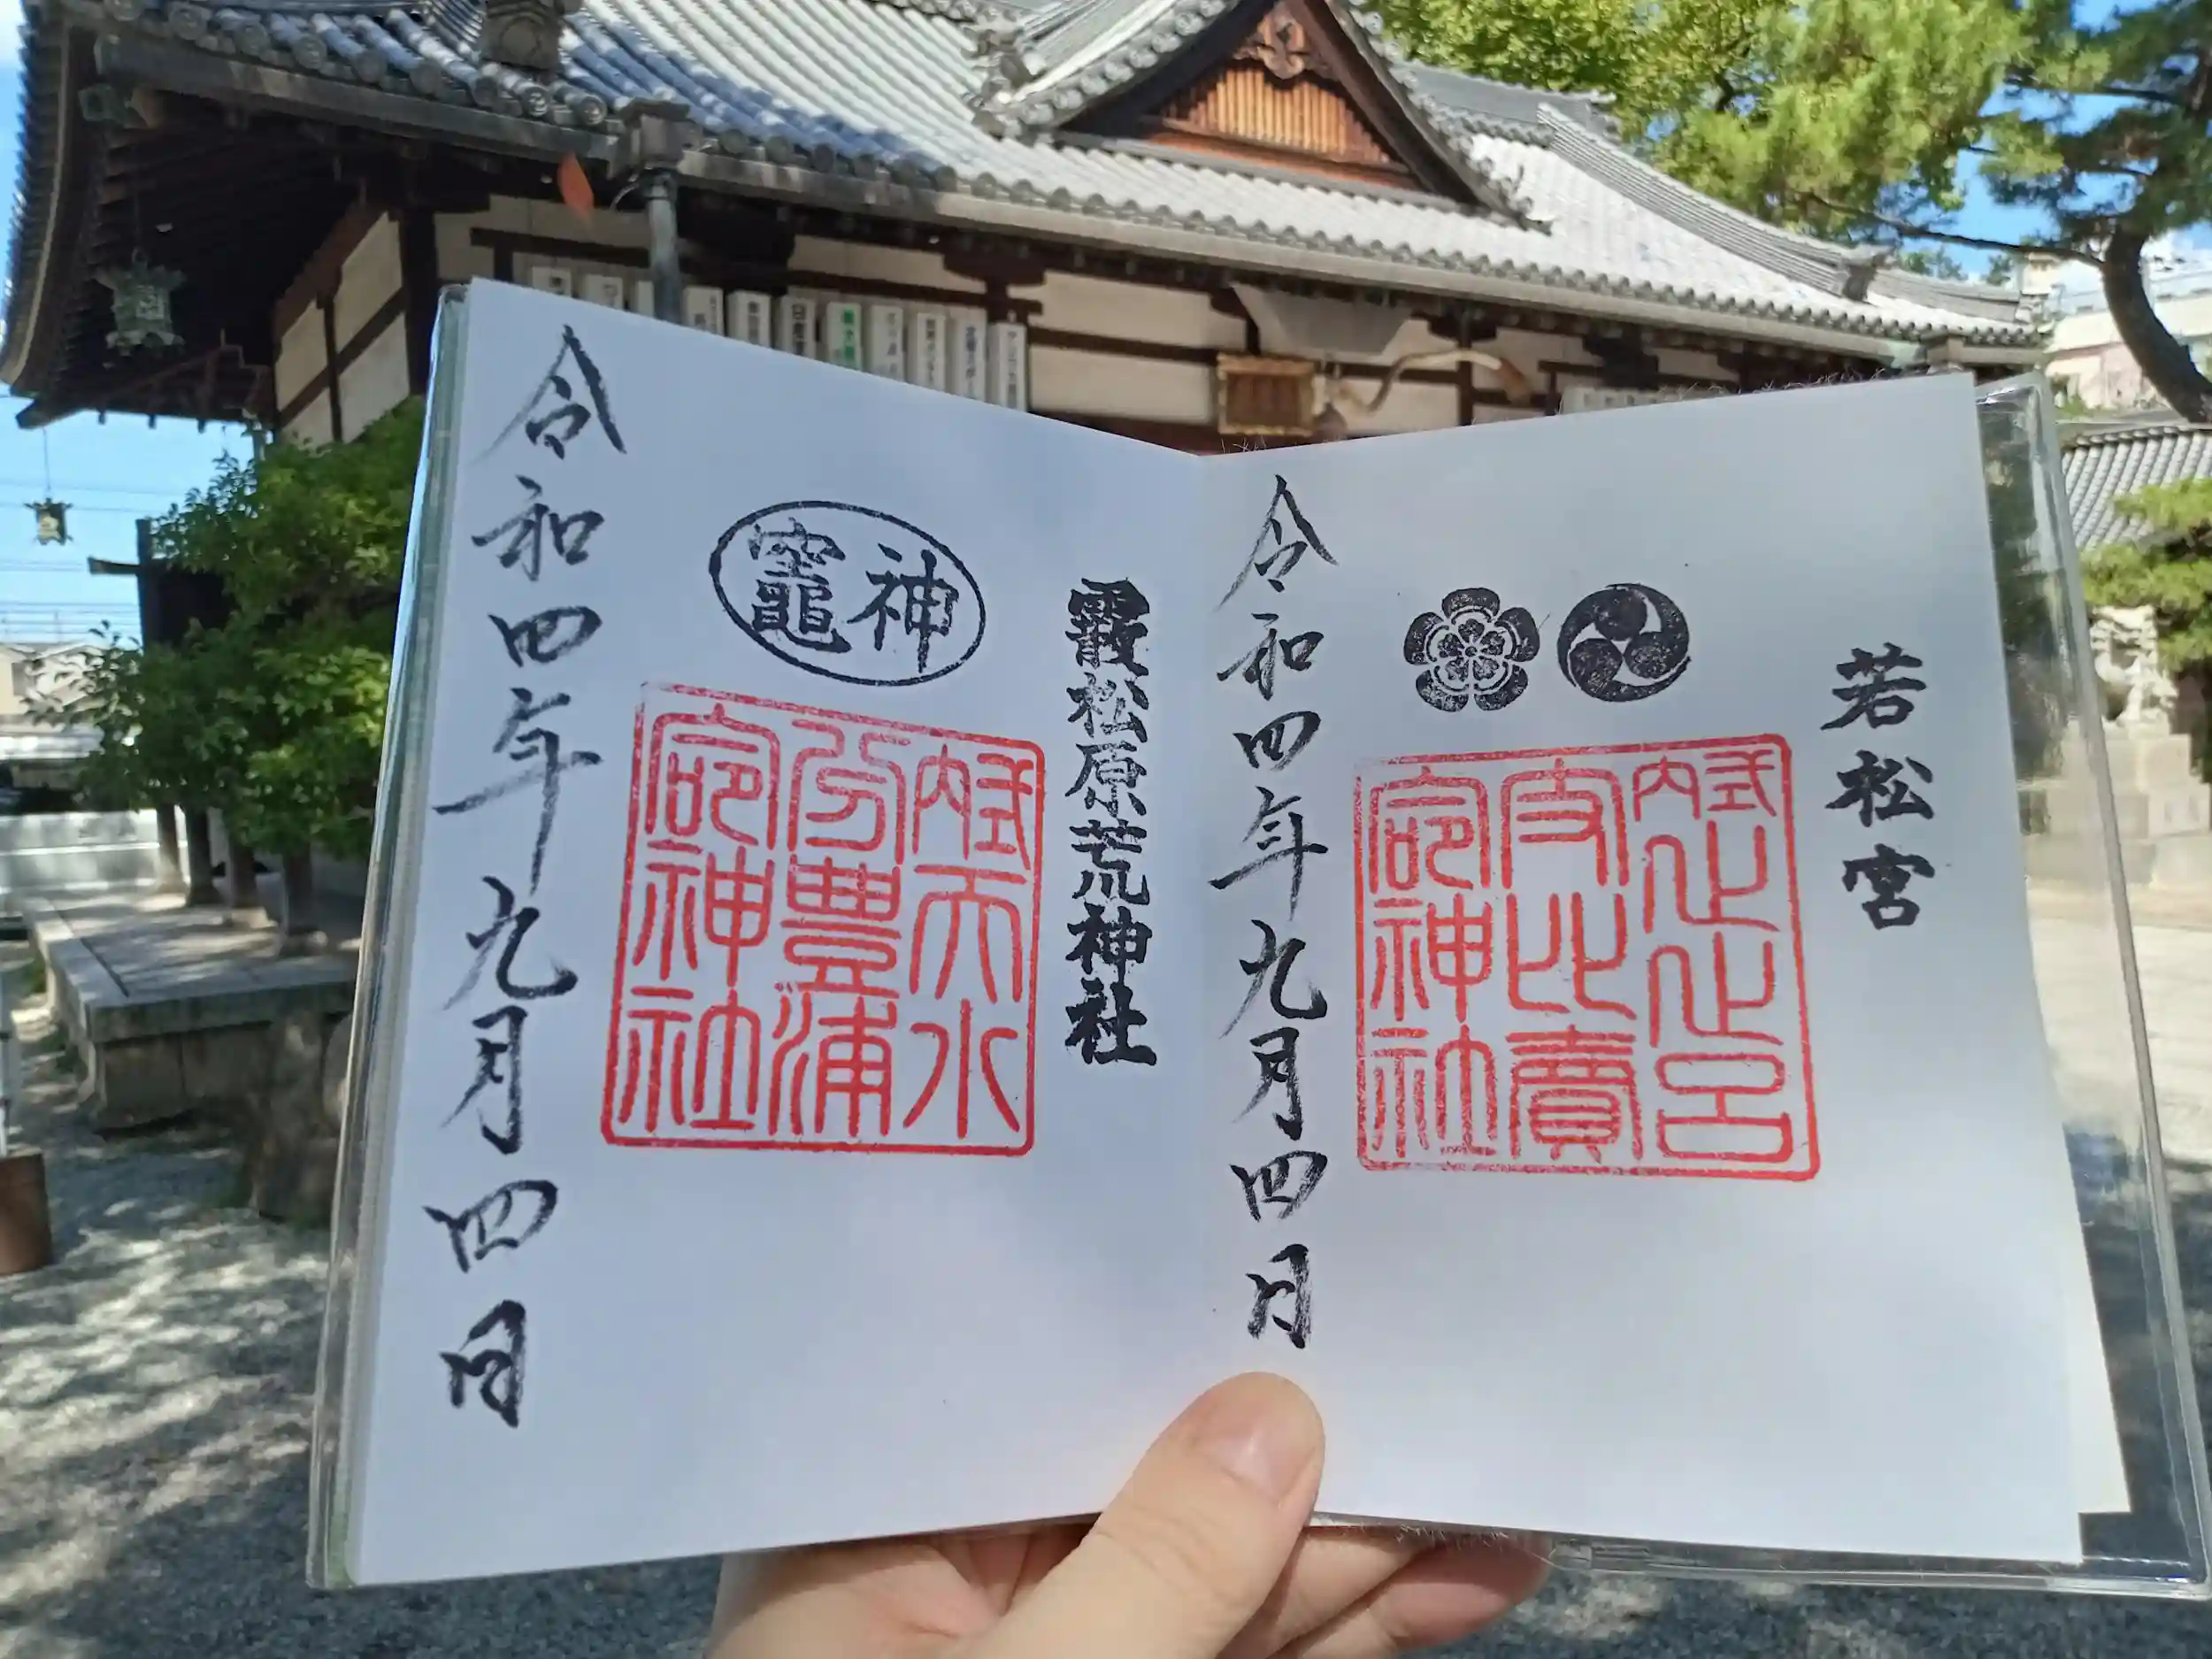 若松宮
式内止止呂
支比賣
命神社
令和四年九月四日
霰松原荒神社
神竈
式内天水
分豊浦
命神社
令和四年九月四日